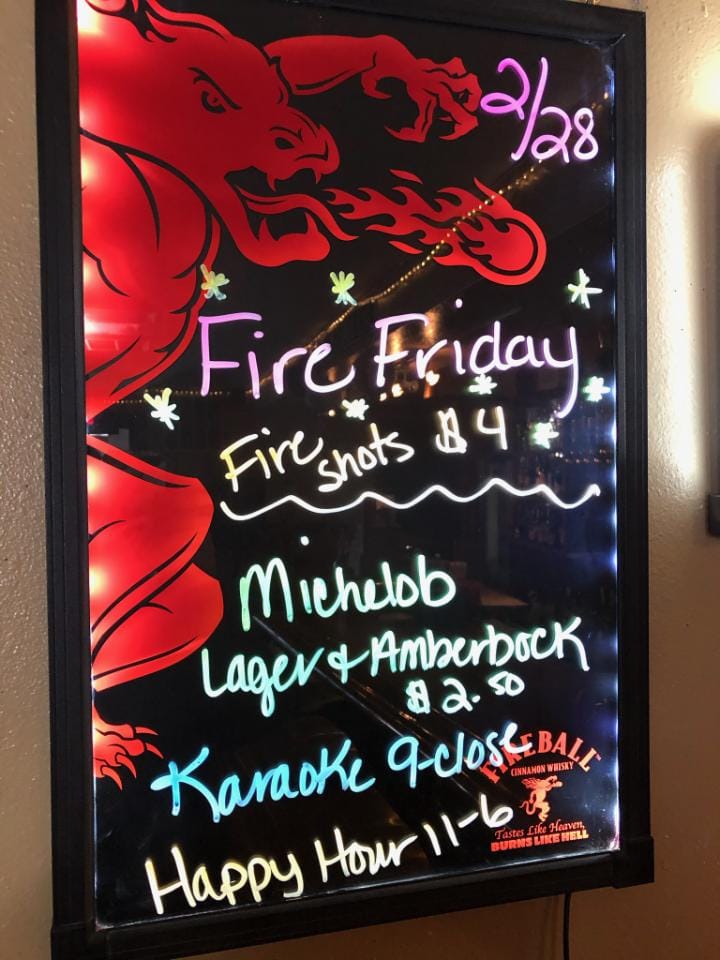 2/28
Fire Friday
Fire shots $4
Michelob
Lager + Amberbock
$2.50
Karaoke 9-close
FIREBALL
CINNAMON WHISKY
Happy Hour 11-6
Tastes Like Heaven,
BURNS LIKE HELL